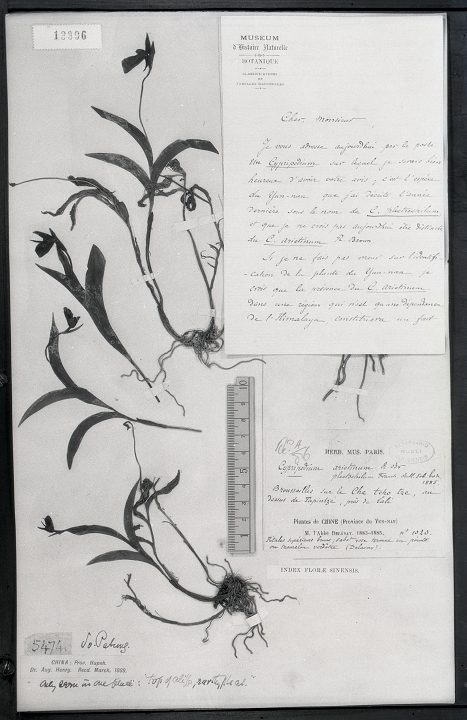 13396
MUSEUM
d'Histoire Naturelle
BOTANIQUE
CLASSIFICATIONS
ET
FAMILLES NATURELLES
Cher Monsieur
Je vous adresse aujourd'hui par la poste
un Cypripedium sur lequel je serais bien
heureux d'avoir votre avis; c'est l'espèce
du Yun-nan que j'ai décrite l'année
dernière sous le nom de C. plectrochilum
et que je ne crois pas aujourd'hui être distincte
du C. arietinum R. Brown
Si je ne fais pas erreur sur l'identifi-
cation de la plante du Yun-nan je
crois que la présence du C arietinum
dans une région qui n'est qu'une dépendance
de l'Himalaya constituera un fait
HERB. MUS. PARIS.
Cypripedium arietinum R. Br
plectrochilum Franch.
1885.
Broussailles sur le Che tcho tze, au
dessus de Tapintze, près de Tali.
Plantes de CHINE (Province du Yun-nan)
M. l'Abbé DELAVAY. 1883-1885. n° 1020
INDEX FLORÆ SINENSIS.
5474. So. Patung.
CHINA: Prov. Hupeh.
Dr. Aug. Henry. Recd. March, 1889.
Only seen in one place: "top of cliff,